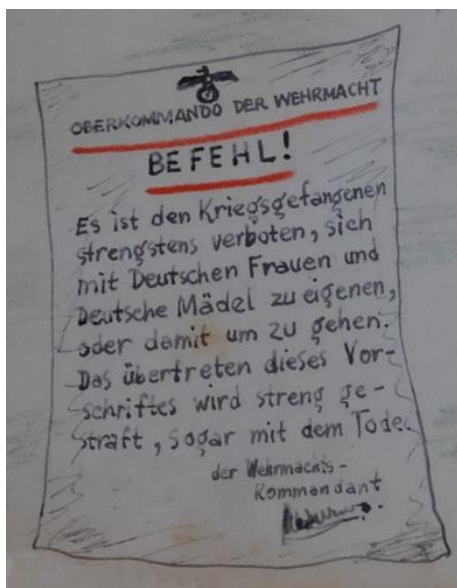 OBERKOMMANDO DER WEHRMACHT
BEFEHL!
Es ist den Kriegsgefangenen
strengstens verboten, sich
mit Deutschen Frauen und
Deutsche Mädel zu eigenen,
oder damit um zu gehen.
Das übertreten dieses Vor-
schriftes wird streng ge-
straft, sogar mit dem Tode.
der Wehrmachts-
Kommandant